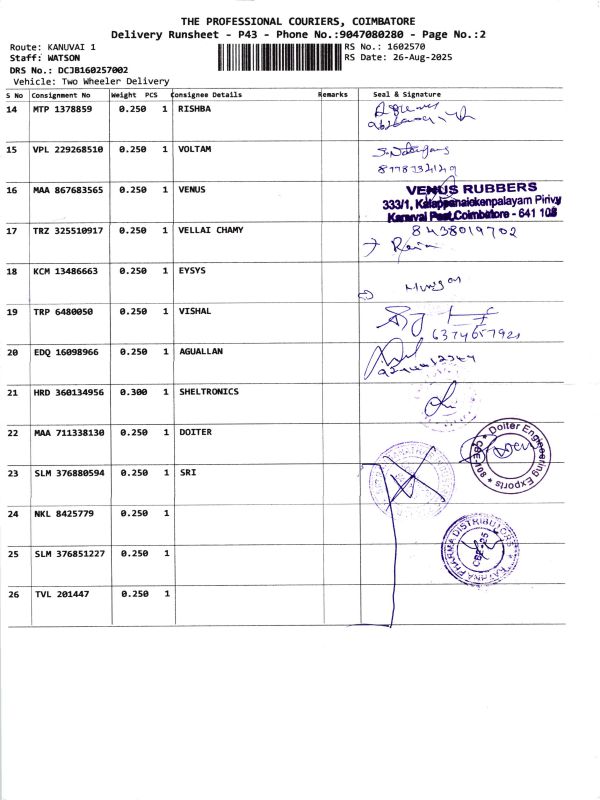 THE PROFESSIONAL COURIERS, COIMBATORE
Delivery Runsheet - P43 - Phone No.:9047080280 - Page No.:2
Route: KANUVAI 1
RS No.: 1602570
Staff: WATSON
RS Date: 26-Aug-2025
DRS No.: DCJB160257002
Vehicle: Two Wheeler Delivery
S No Consignment No Weight PCS Consignee Details Remarks Seal & Signature
14 MTP 1378859 0.250 1 RISHBA
15 VPL 229268510 0.250 1 VOLTAM
16 MAA 867683565 0.250 1 VENUS
VENUS RUBBERS
333/1, Kalappanaickenpalayam Pirivu
Kanuvai Post, Coimbatore - 641 108
17 TRZ 325510917 0.250 1 VELLAI CHAMY 8438019702
18 KCM 13486663 0.250 1 EYSYS Murugan
19 TRP 6480050 0.250 1 VISHAL
6374657921
20 EDQ 16098966 0.250 1 AGUALLAN
21 HRD 360134956 0.300 1 SHELTRONICS
22 MAA 711338130 0.250 1 DOITER
Doiter Engineering Exports
23 SLM 376880594 0.250 1 SRI
24 NKL 8425779 0.250 1
RATHNA PHARMA DISTRIBUTORS
CBE-25
25 SLM 376851227 0.250 1
26 TVL 201447 0.250 1